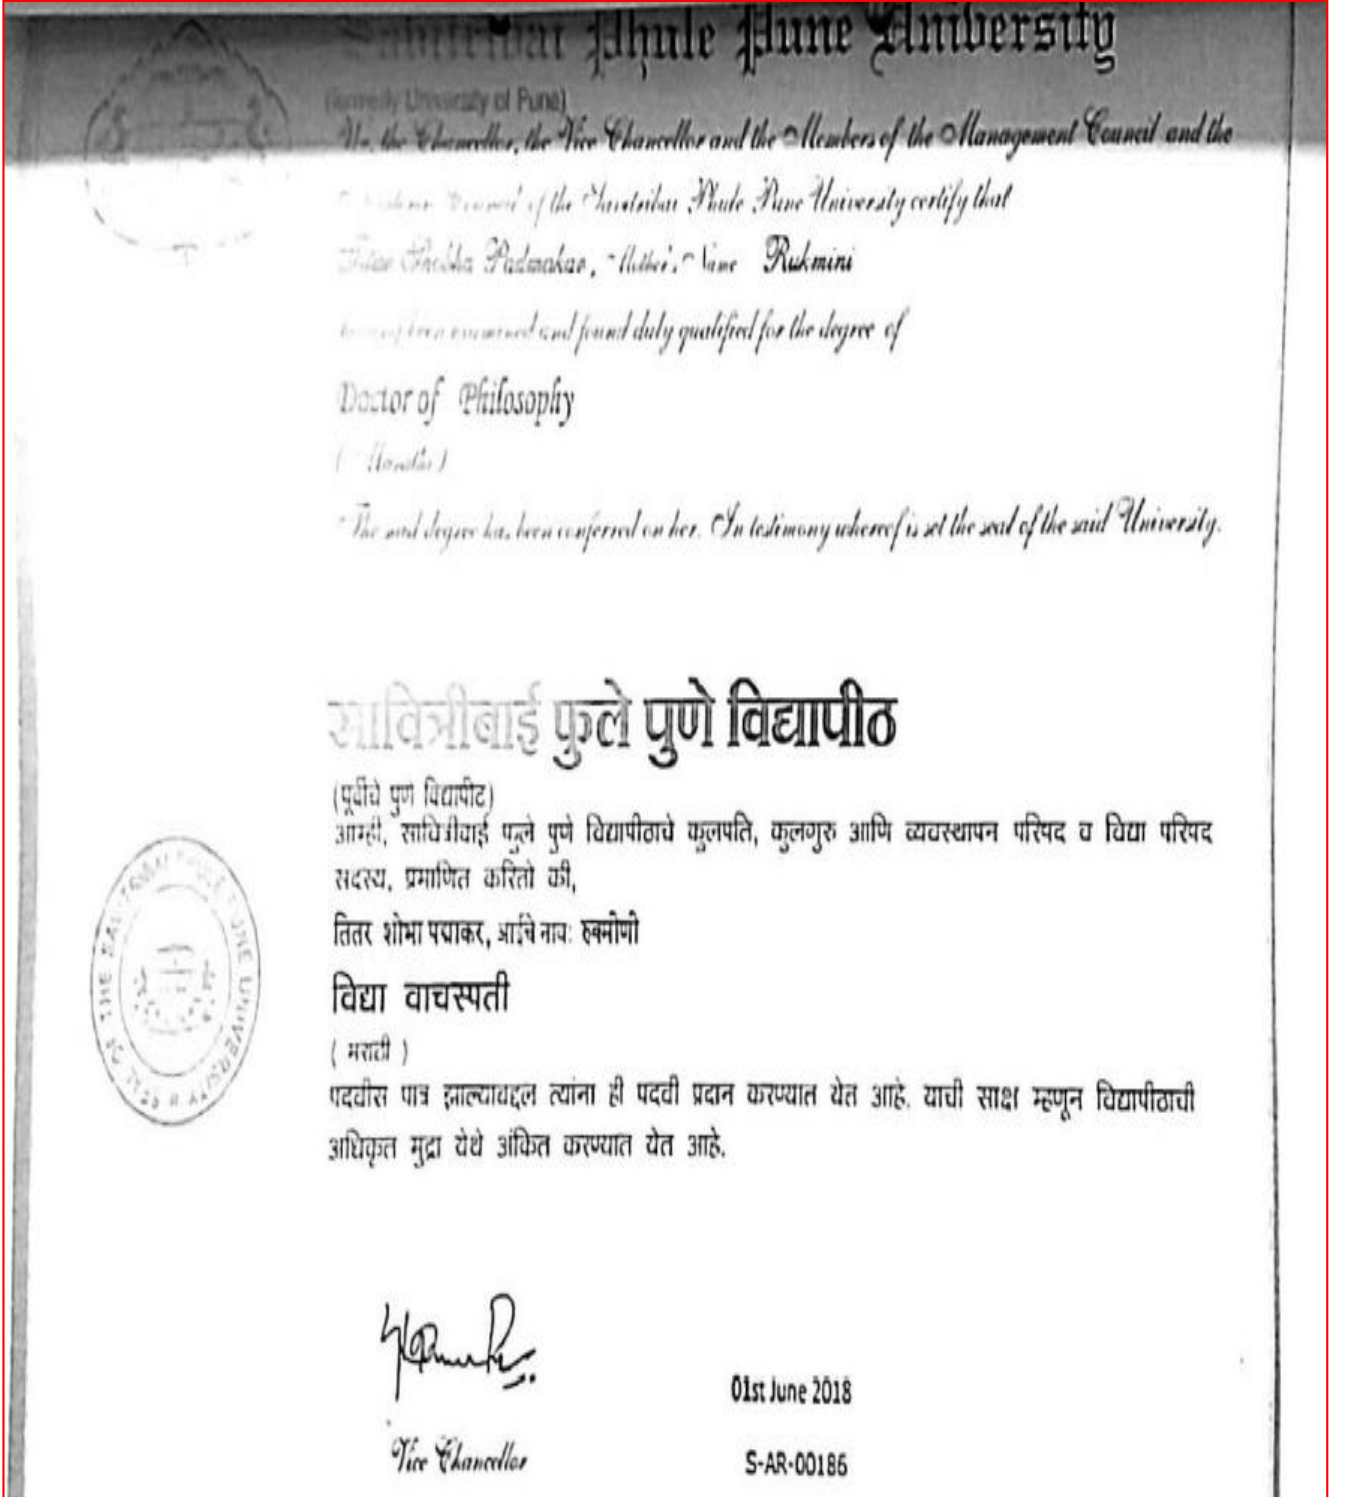 Savitribai Phule Pune University
(formerly University of Pune)
We, the Chancellor, the Vice Chancellor and the Members of the Management Council and the
Council of the Savitribai Phule Pune University certify that
Shobha Padmakar, Mother's Name Rukmini
having been examined and found duly qualified for the degree of
Doctor of Philosophy
( Marathi )
The said degree has been conferred on her. In testimony whereof is set the seal of the said University.
सावित्रीबाई फुले पुणे विद्यापीठ
(पूर्वीचे पुणे विद्यापीठ)
आम्ही, सावित्रीबाई फुले पुणे विद्यापीठाचे कुलपति, कुलगुरु आणि व्यवस्थापन परिषद व विद्या परिषद
सदस्य, प्रमाणित करितो की,
तितर शोभा पद्माकर, आईचे नाव: रुक्मीणी
विद्या वाचस्पती
( मराठी )
पदवीस पात्र झाल्याबद्दल त्यांना ही पदवी प्रदान करण्यात येत आहे. याची साक्ष म्हणून विद्यापीठाची
अधिकृत मुद्रा येथे अंकित करण्यात येत आहे.
SEAL OF THE SAVITRIBAI PHULE PUNE UNIVERSITY
01st June 2018
Vice Chancellor
S-AR-00186